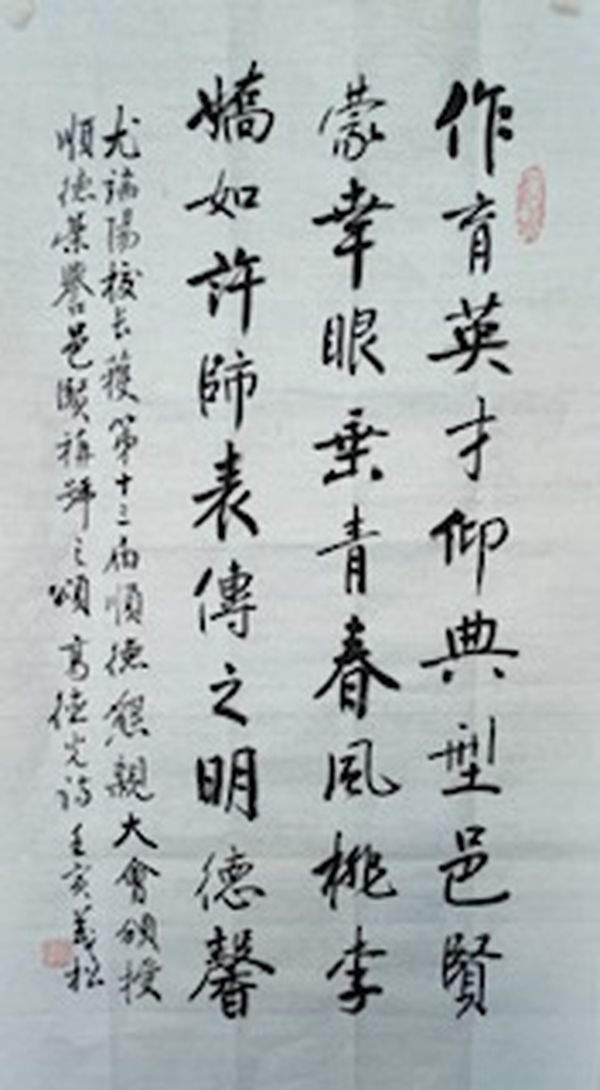 作育英才仰典型邑賢
蒙幸眼垂青春風桃李
嬌如許師表傳之明德馨
尤陽校長獲第十三屆順德懇親大會頒授
順德榮譽邑賢稱號之頌高德光詩壬寅義松